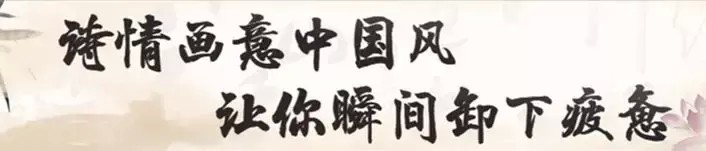 诗情画意中国风
让你瞬间卸下疲惫